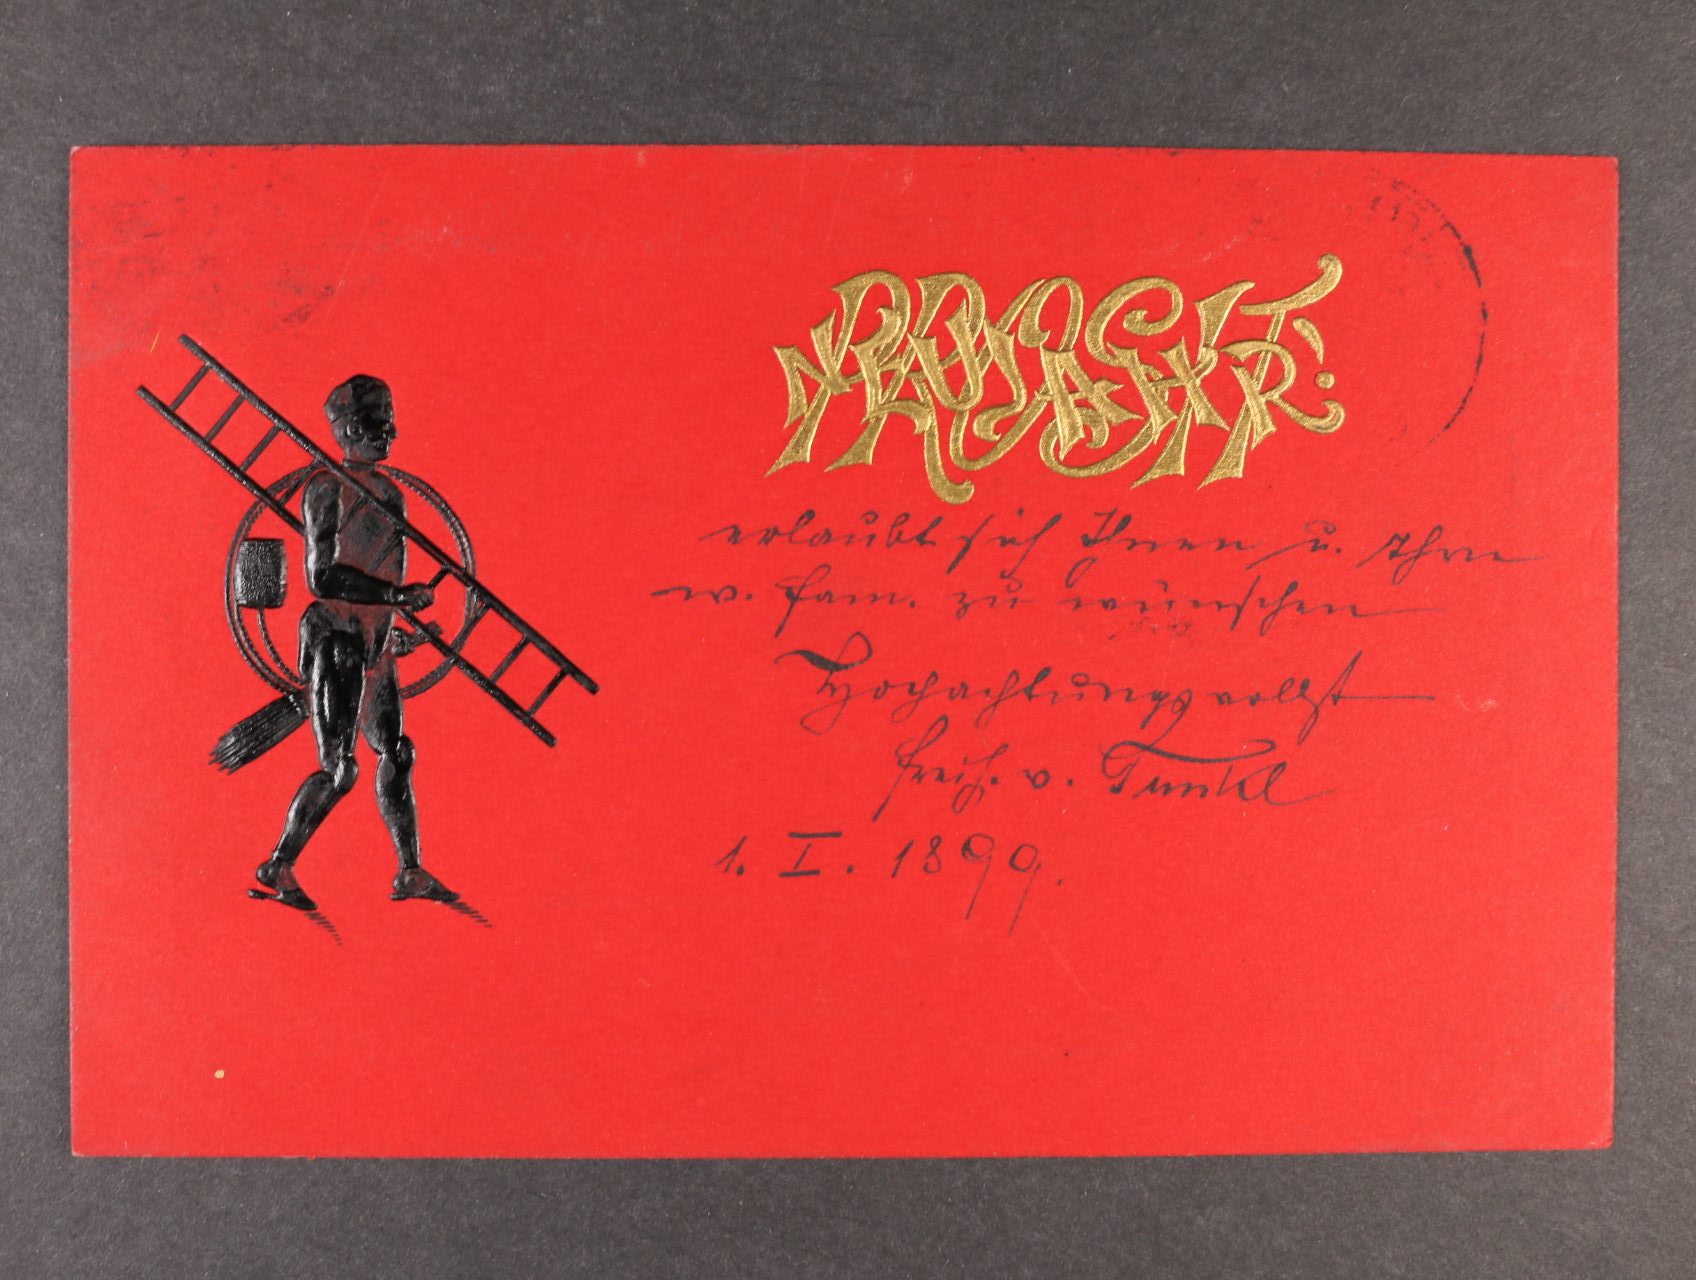 PROSIT
NEUJAHR!
erlaubt sich Ihnen u. Ihrer
w. Fam. zu wünschen
Hochachtungsvollst
Freih. v. Tunkl
1. I. 1899.